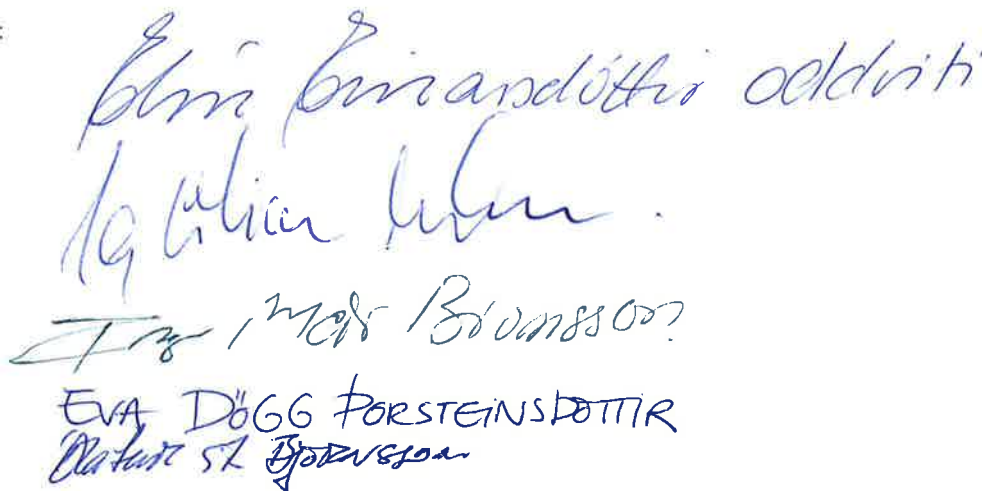 Elín Einarsdóttir oddviti
Ingi Már Björnsson
EVA DÖGG ÞORSTEINSDÓTTIR
Ólafur St Björnsson